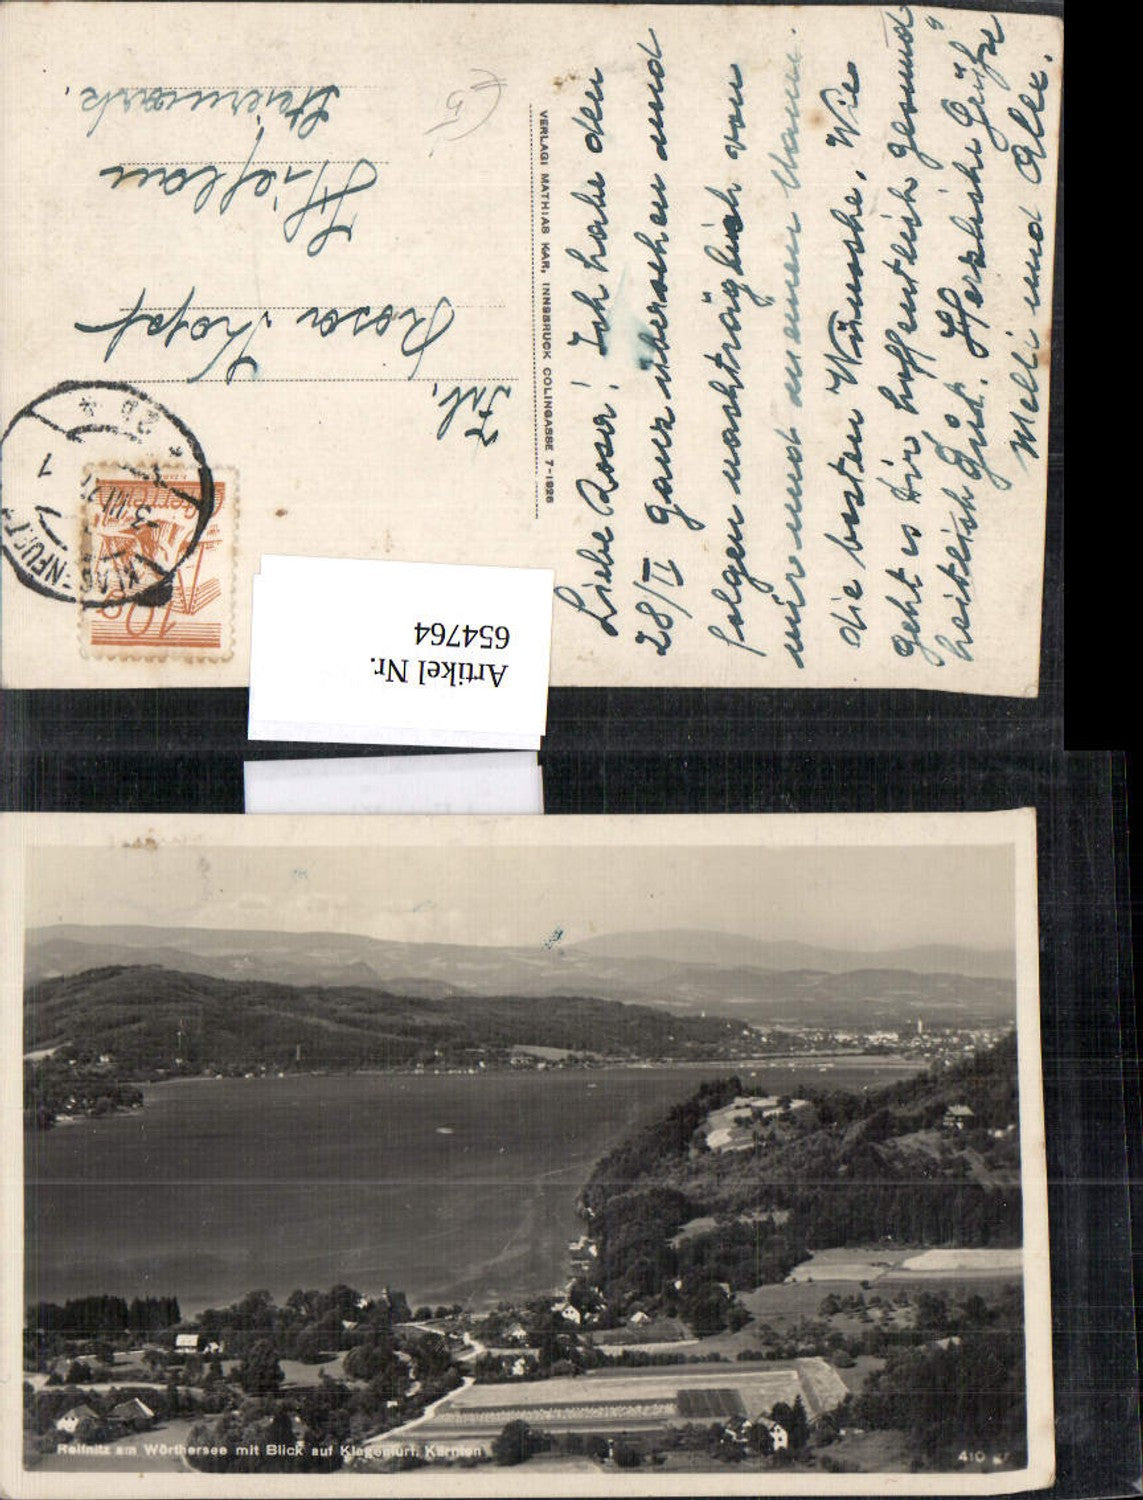 Liebe Rosa! Ich habe den
28/II ganz übersehen und
folgen nachträglich von
mir und meinem Mann
die besten Wünsche. Wie
geht es Dir hoffentlich gesund
heitlich Gut. Herzliche Grüße
Melli und Alle.
VERLAG: MATHIAS KAR, INNSBRUCK COLINGASSE 7-1926
Frl.
Rosa
Hieflau
Steiermark.
10g
Österreich
KLAGENFURT 1
Artikel Nr.
654764
Reifnitz am Wörthersee mit Blick auf Klagenfurt, Kärnten
410